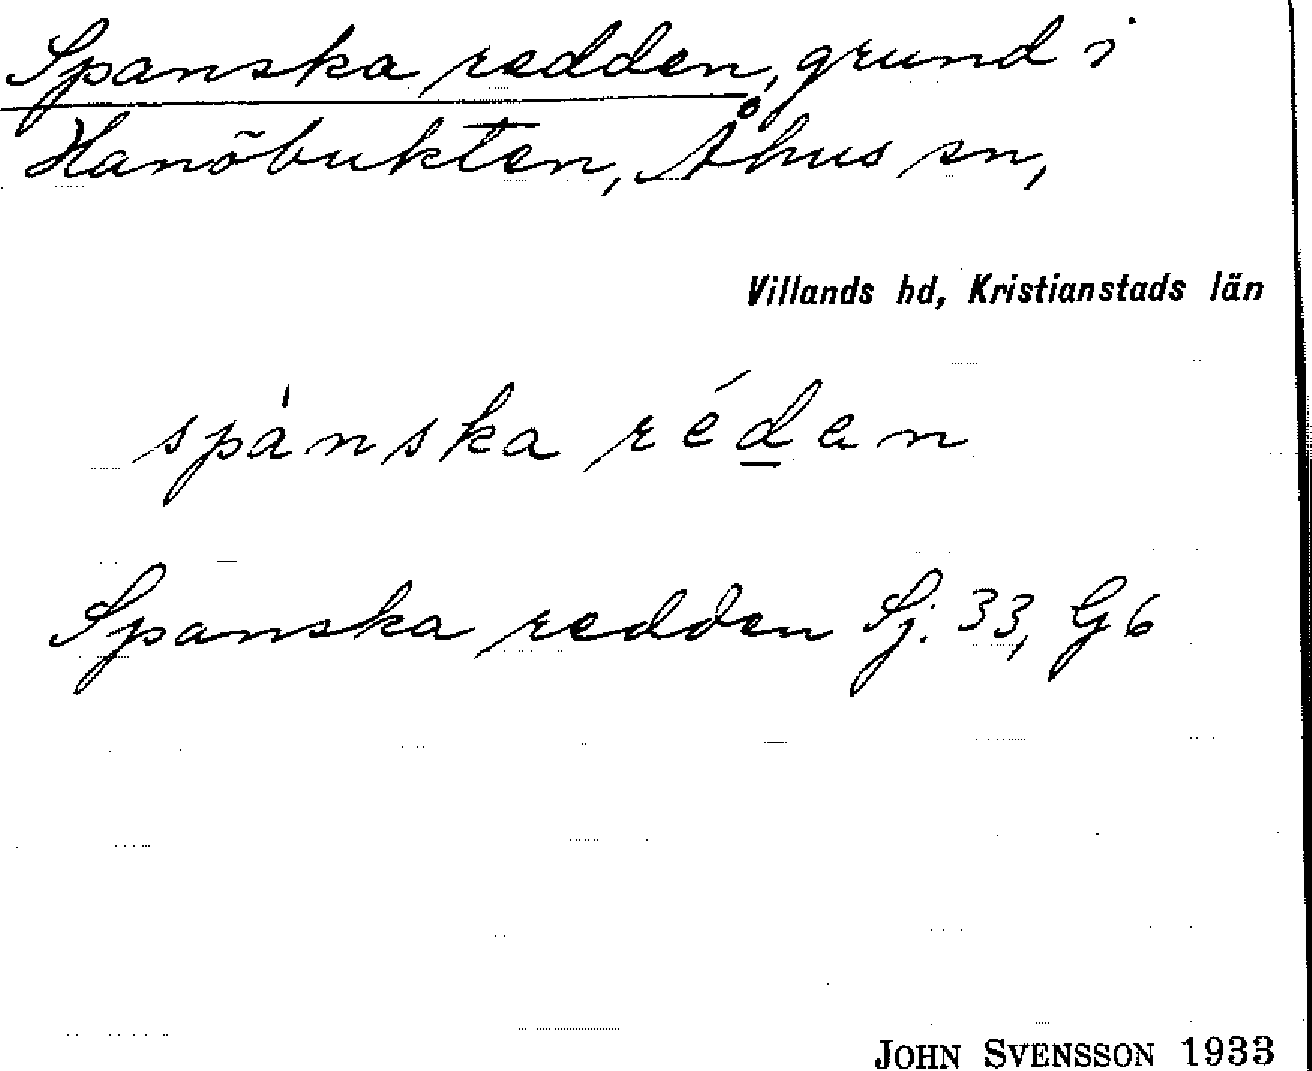 Spanska redden, grund i
Hanöbukten, Åhus sn,
Villands hd, Kristianstads län
spànska réd̲en
Spanska redden Sj. 33, G6
JOHN SVENSSON 1933